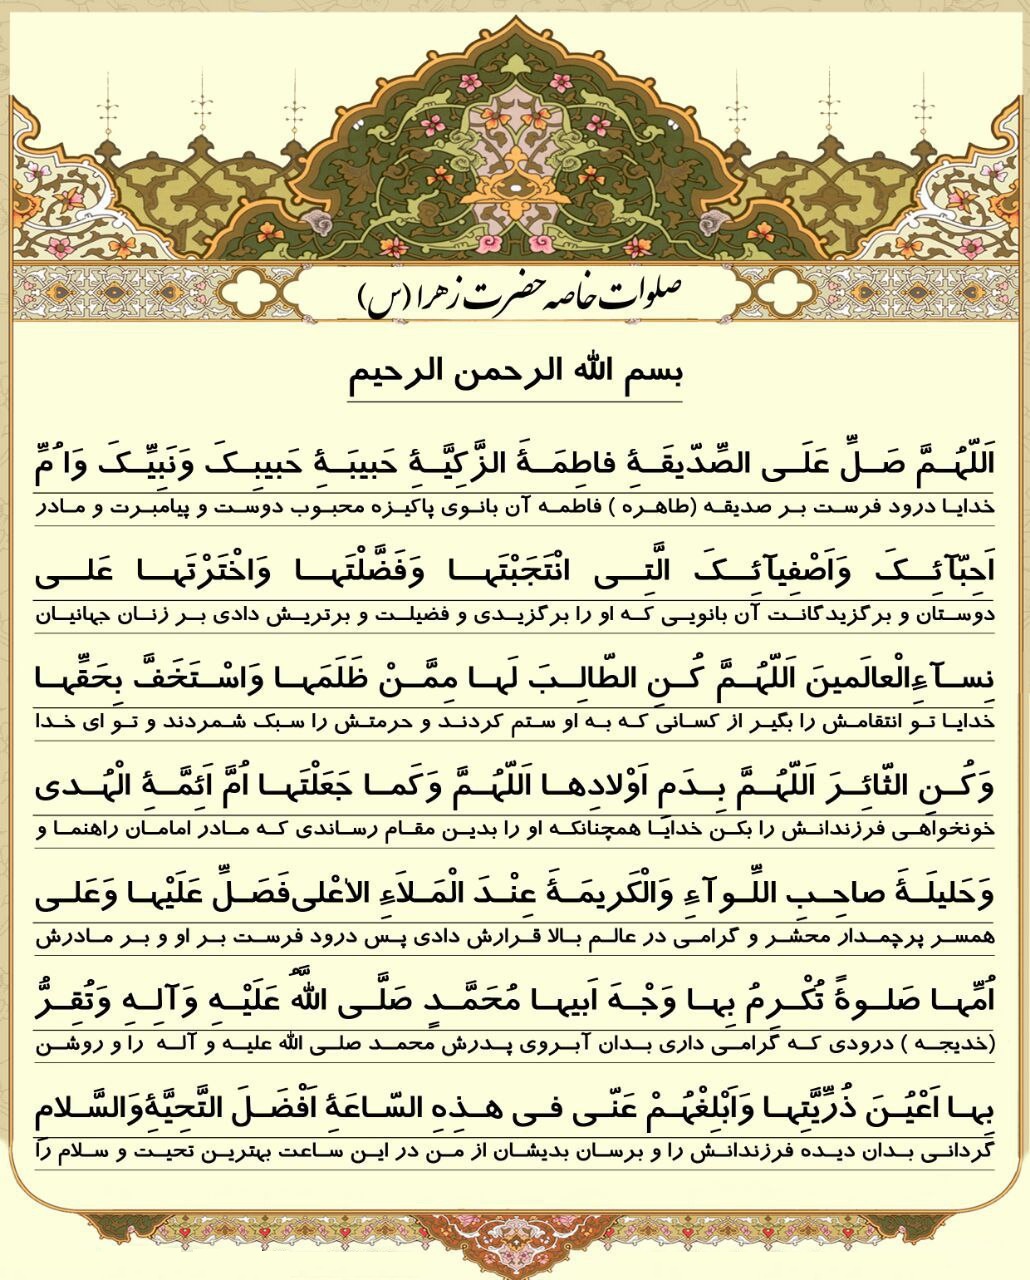 صلوات خاصه حضرت زهرا (س)
بسم الله الرحمن الرحیم
اَللّهُمَّ صَلِّ عَلَی الصِّدّیقَةِ فاطِمَةَ الزَّکِیَّةِ حَبیبَةِ حَبیبِکَ وَنَبِیِّکَ وَاُمِّ
خدایا درود فرست بر صدیقه (طاهره ) فاطمه آن بانوی پاکیزه محبوب دوست و پیامبرت و مادر
اَحِبّآئِکَ وَاَصْفِیآئِکَ الَّتِی انْتَجَبْتَها وَفَضَّلْتَها وَاخْتَرْتَها عَلی
دوستان و برگزیدگانت آن بانویی که او را برگزیدی و فضیلت و برتریش دادی بر زنان جهانیان
نِسآءِالْعالَمینَ اَللّهُمَّ کُنِ الطّالِبَ لَها مِمَّنْ ظَلَمَها وَاسْتَخَفَّ بِحَقِّها
خدایا تو انتقامش را بگیر از کسانی که به او ستم کردند و حرمتش را سبک شمردند و تو ای خدا
وَکُنِ الثّائِرَ اَللّهُمَّ بِدَمِ اَوْلادِها اَللّهُمَّ وَکَما جَعَلْتَها اُمَّ اَئِمَّةِ الْهُدی
خونخواهی فرزندانش را بکن خدایا همچنانکه او را بدین مقام رساندی که مادر امامان راهنما و
وَحَلیلَةَ صاحِبِ اللِّوآءِ وَالْکَریمَةَ عِنْدَ الْمَلاَءِ الاْعْلی فَصَلِّ عَلَیْها وَعَلی
همسر پرچمدار محشر و گرامی در عالم بالا قرارش دادی پس درود فرست بر او و بر مادرش
اُمِّها صَلوةً تُکْرِمُ بِها وَجْهَ اَبیها مُحَمَّدٍ صَلَّی اللَّهُ عَلَیْهِ وَآلِهِ وَتُقِرُّ
(خدیجه ) درودی که گرامی داری بدان آبروی پدرش محمد صلی الله علیه و آله را و روشن
بِها اَعْیُنَ ذُرِّیَّتِها وَاَبْلِغْهُمْ عَنّی فی هذِهِ السّاعَةِ اَفْضَلَ التَّحِیَّةِ وَالسَّلامِ
گردانی بدان دیده فرزندانش را و برسان بدیشان از من در این ساعت بهترین تحیت و سلام را